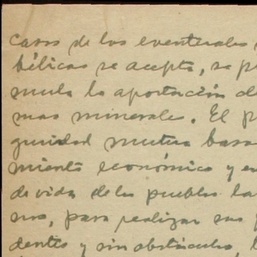 casos de los eventuales
bélicas se acepta, se p
mula la aportación d
mas minerales. El p
guridad mutua basa
miento económico y e
de vida de los pueblos la
no, para realizar sus
dentes y sin obstáculos, l